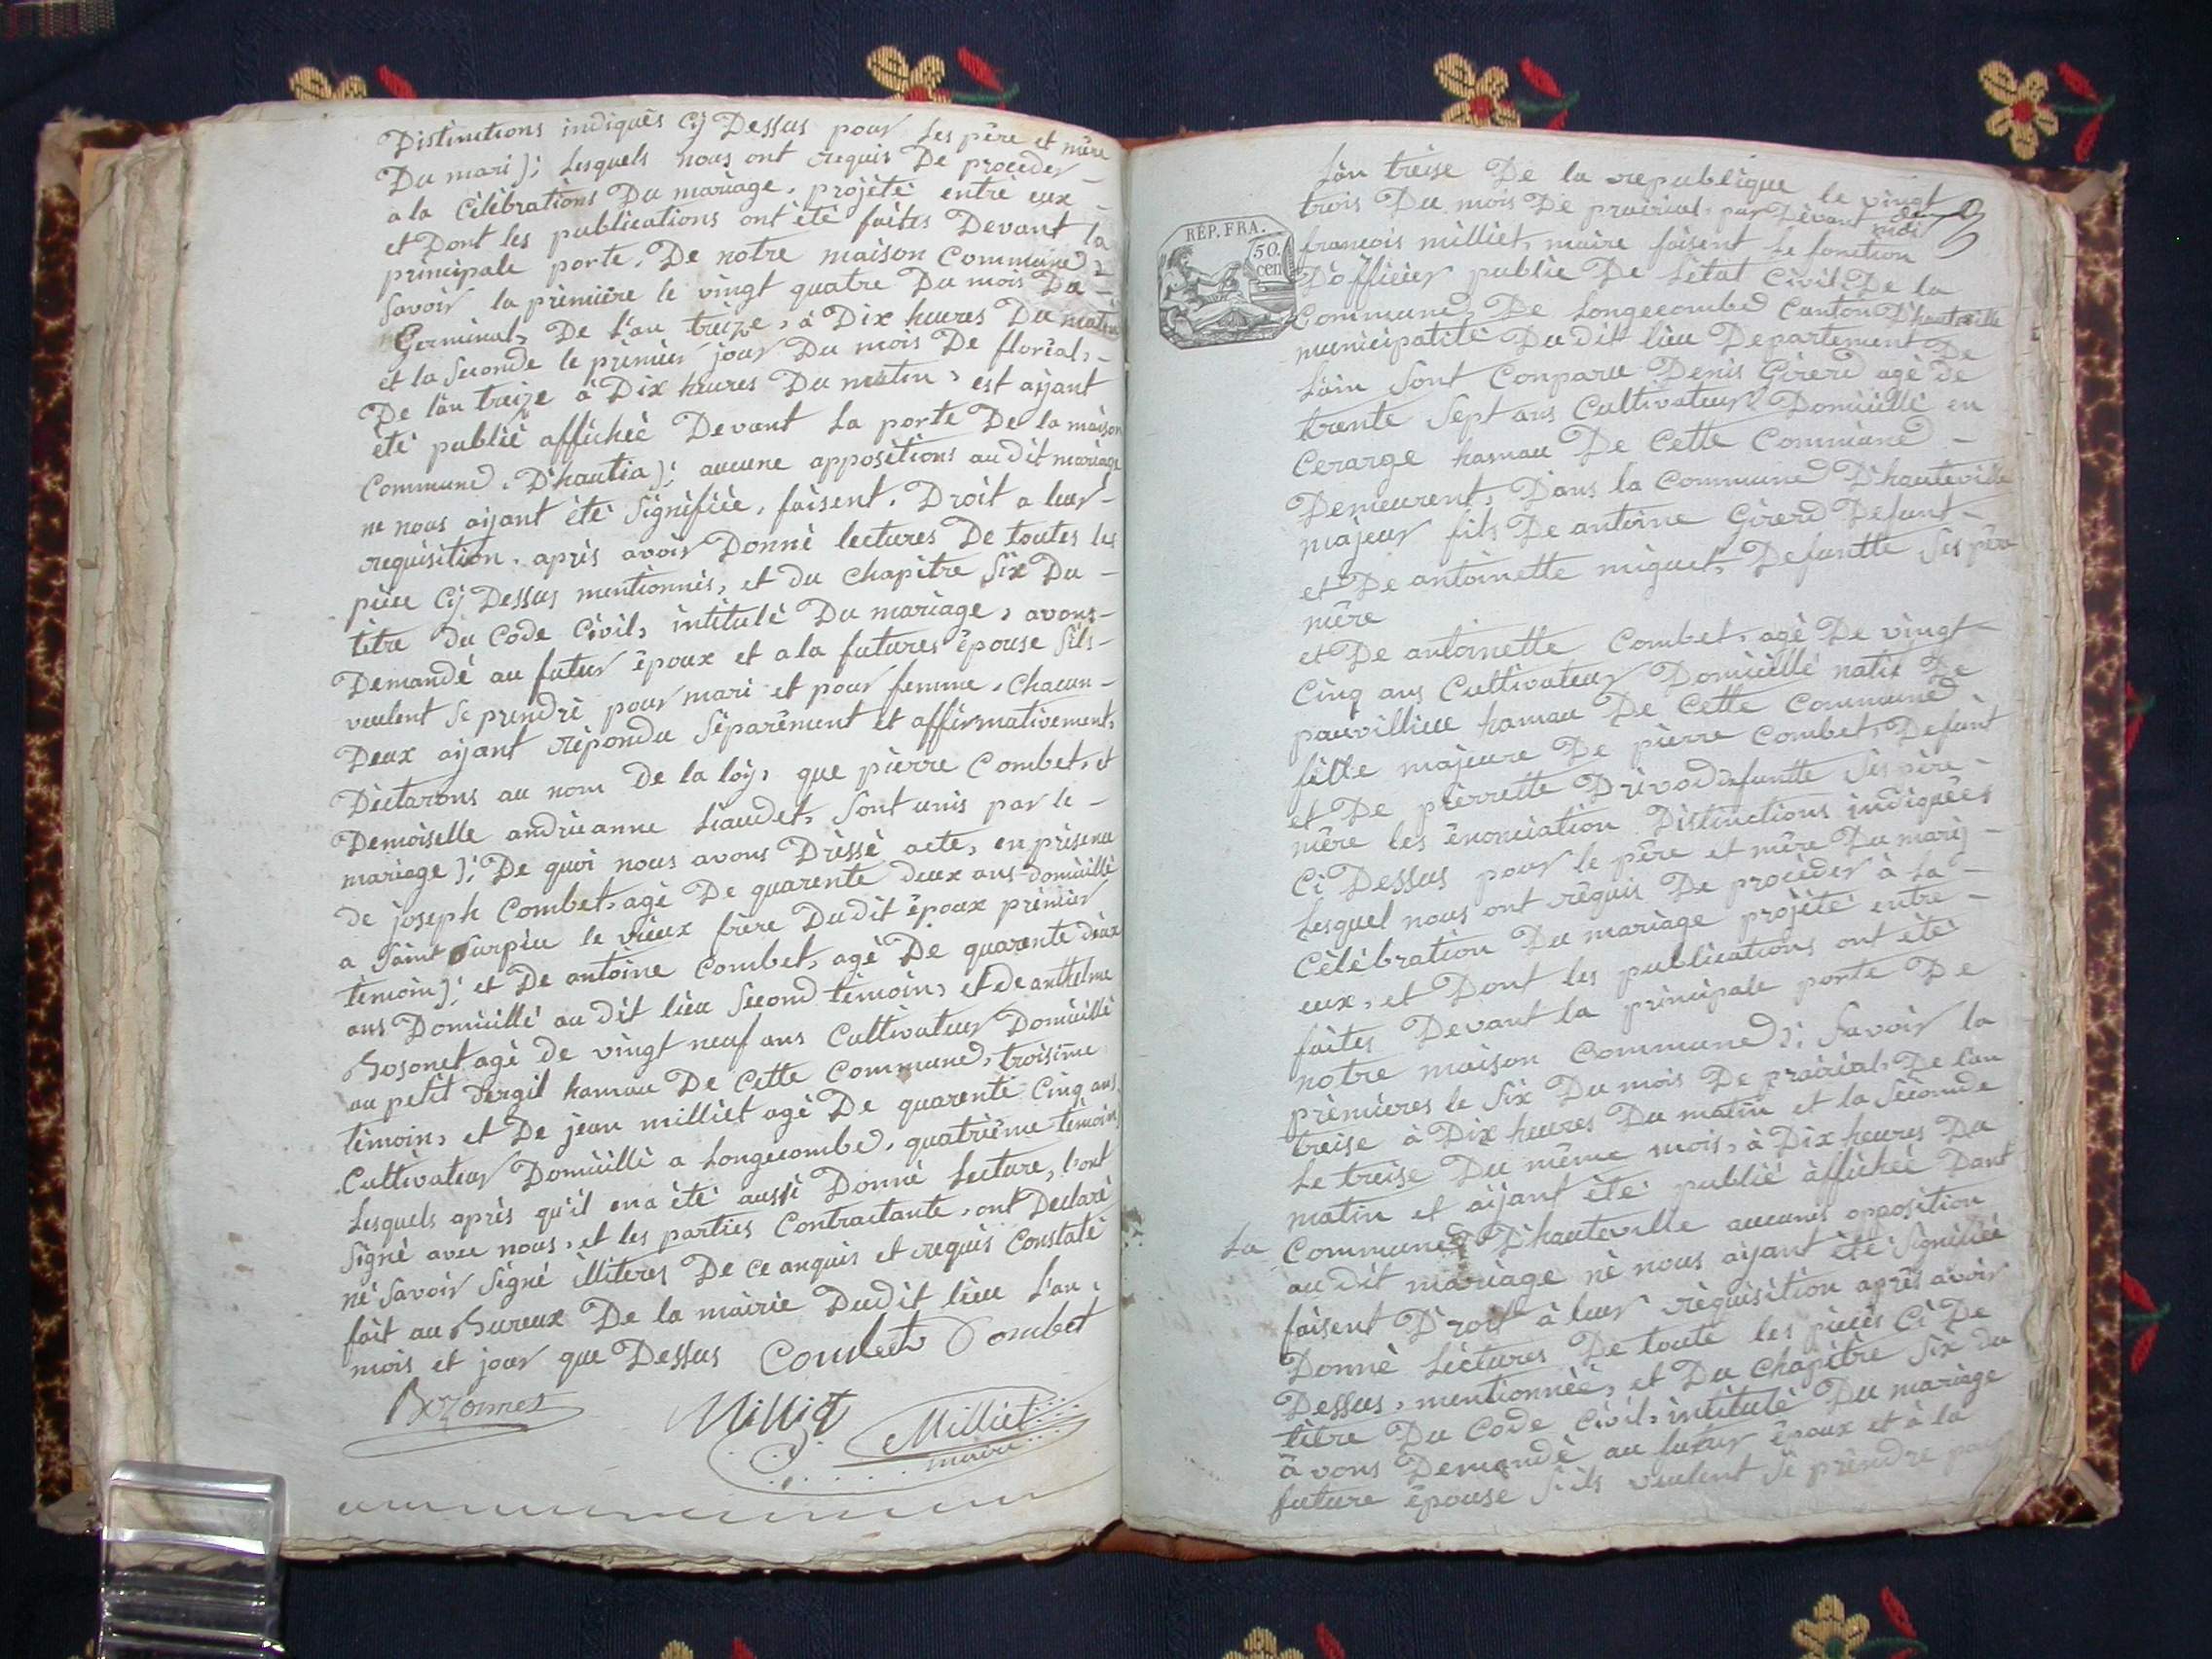 Distinctions indiqués Cÿ Dessus pour Les père et mère
Du mari); Lesquels nous ont requis De proceder
a la Célébrations Du mariage, projèté entre eux
et Dont les publications ont été faites Devant la
principale porte, De notre maison Commune
Savoir la première le vingt quatre Du mois Du
Germinal, De l'an treize, à Dix heures Du matin
et la Seconde le prèmier jour Du mois De florial,
De làn treize à Dix heures Du matin, est aÿant
été publié affichéé Devant La porte De la maison
Commune, D'hautia); aucune appositions audit mariage
ne nous aÿant été Signifiée, faisent, Droit a leur
requisition, après avoir Donné lectures De toutes les
pièce Cÿ Dessus mentionnés, et du chapitre Six Du
titre du Code Civil, intitulé Du mariage, avons
Demandé au futur époux et a la futures épouse Sils
veulent Se prendre pour mari et pour femme, Chacun
Deux aÿant répondu Séparément et affirmativement,
Déclarons au nom De la loÿ, que pierre Combet, et
Demoiselle andrieanne Liaudet, Sont unis par le
mariage); De quoi nous avons Dréssé acte, en présence
de joseph Combet, agé De quarente deux ans domicillé
a Saint Surpiu le vieux frère Dudit époux prémier
témoin); et De antoine Combet, agé De quarente deux
ans Domicillé au dit lieu Second témoin, et de anthelme
Bosonet agé de vingt neuf ans Cultivateur Domicillé
au petit dergil hamau De Cette Commune, troisime
témoin, et De jean milliet agé De quarente Cinq ans
Cultivateur Domicillé a Longecombe, quatrième témoin
Lesquels après qu'il en a été aussi Donné Lecture, l'ont
Signé avec nous, et les parties Contractante, ont Declaré
né Savoir Signé illiteres De ce anquis et requis Constaté
fait au Bureux De la mairie Dudit lieu L'an,
mois et jour que Dessus Combet Combet
Bozonnet Milliet Milliet
maire
Làn treise De la republique le vingt
trois Du mois De prairial, par Dévant midi
REP. FRA.
50.
cen
francois milliet, maire faisent Le fonction
D'officier public De L'état Civil De la
Commune, De Longecombe Canton D'hauteville
municipatité Du dit lieu Departement De
Làin Sont Conparu Denis Girerd agé de
trente Sept ans Cultivateur Domicillé en
Cerarge hamau De Cette Commune
Demeurent, Dans la Commune D'hauteville
majeur fils De antoine Girerd Defunt
et De antoinette miguet, Defuntte Ses père
mére
et De antoinette Combet, agé De vingt
Cinq ans Cultivateur Domicillé natif De
pauvillieu hamau De Cette Commune
fille majeure De pierre Combet, Defunt
et De pierrette Drivo defuntte Ses père
mére les énonciation Distinctions indiquées
Ci Dessus pour le père et mére Du mariÿ
Lesquel nous ont réquis De procéder à La
Célébration Du mariage projété entre
eux, et Dont les publications ont été
faites Devant la principale porte De
notre maison Commune); Savoir la
prèmières le Six Du mois De prairial, De l'an
treise à Dix heures Du matin et la Séconde
Le treise Du même mois, à Dix heures Du
matin et aÿant été publié affichéé Dant
La Commune D'hauteville aucunes opposition
au dit mariage né nous aÿant été Signifiée
faisent Droit à leur réquisition après avoir
Donné Léctures De toute les pièces Ci De
Dessus, mentionnéé, et Du Chapitre Six du
titre Du Code Civil, intitulé Du mariage
avons Demandé au futur époux et à la
future épouse S'ils veulent Se prendre pour